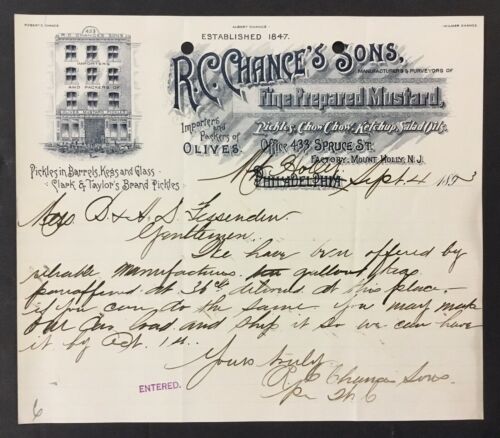 ROBERT C. CHANCE
ALBERT CHANCE
WILMER CHANCE
ESTABLISHED 1847.
R.C. CHANCE'S SONS,
MANUFACTURERS & PURVEYORS OF
Fine Prepared Mustard,
Pickles, Chow Chow, Ketchup, Salad Oils.
Importers
and
Packers of
OLIVES.
Office 433 SPRUCE ST.
FACTORY: MOUNT HOLLY, N.J.
433
R.C. CHANCES SONS.
IMPORTERS
AND PACKERS OF
OLIVES MUSTARD PICKLES
Pickles in Barrels, Kegs and Glass
Clark & Taylor's Brand Pickles
PHILADELPHIA
Mt Holly Sept. 4 1893
Mess D. & A. S. Fessenden.
Gentlemen
We have been offered by
reliable manufactures gallons
paraffined at 36cts delivered at this place.
if you can do the same you may make
our Car load and ship it so we can have
it by Oct. 14.
Yours truly
R C Chances Sons.
ENTERED.